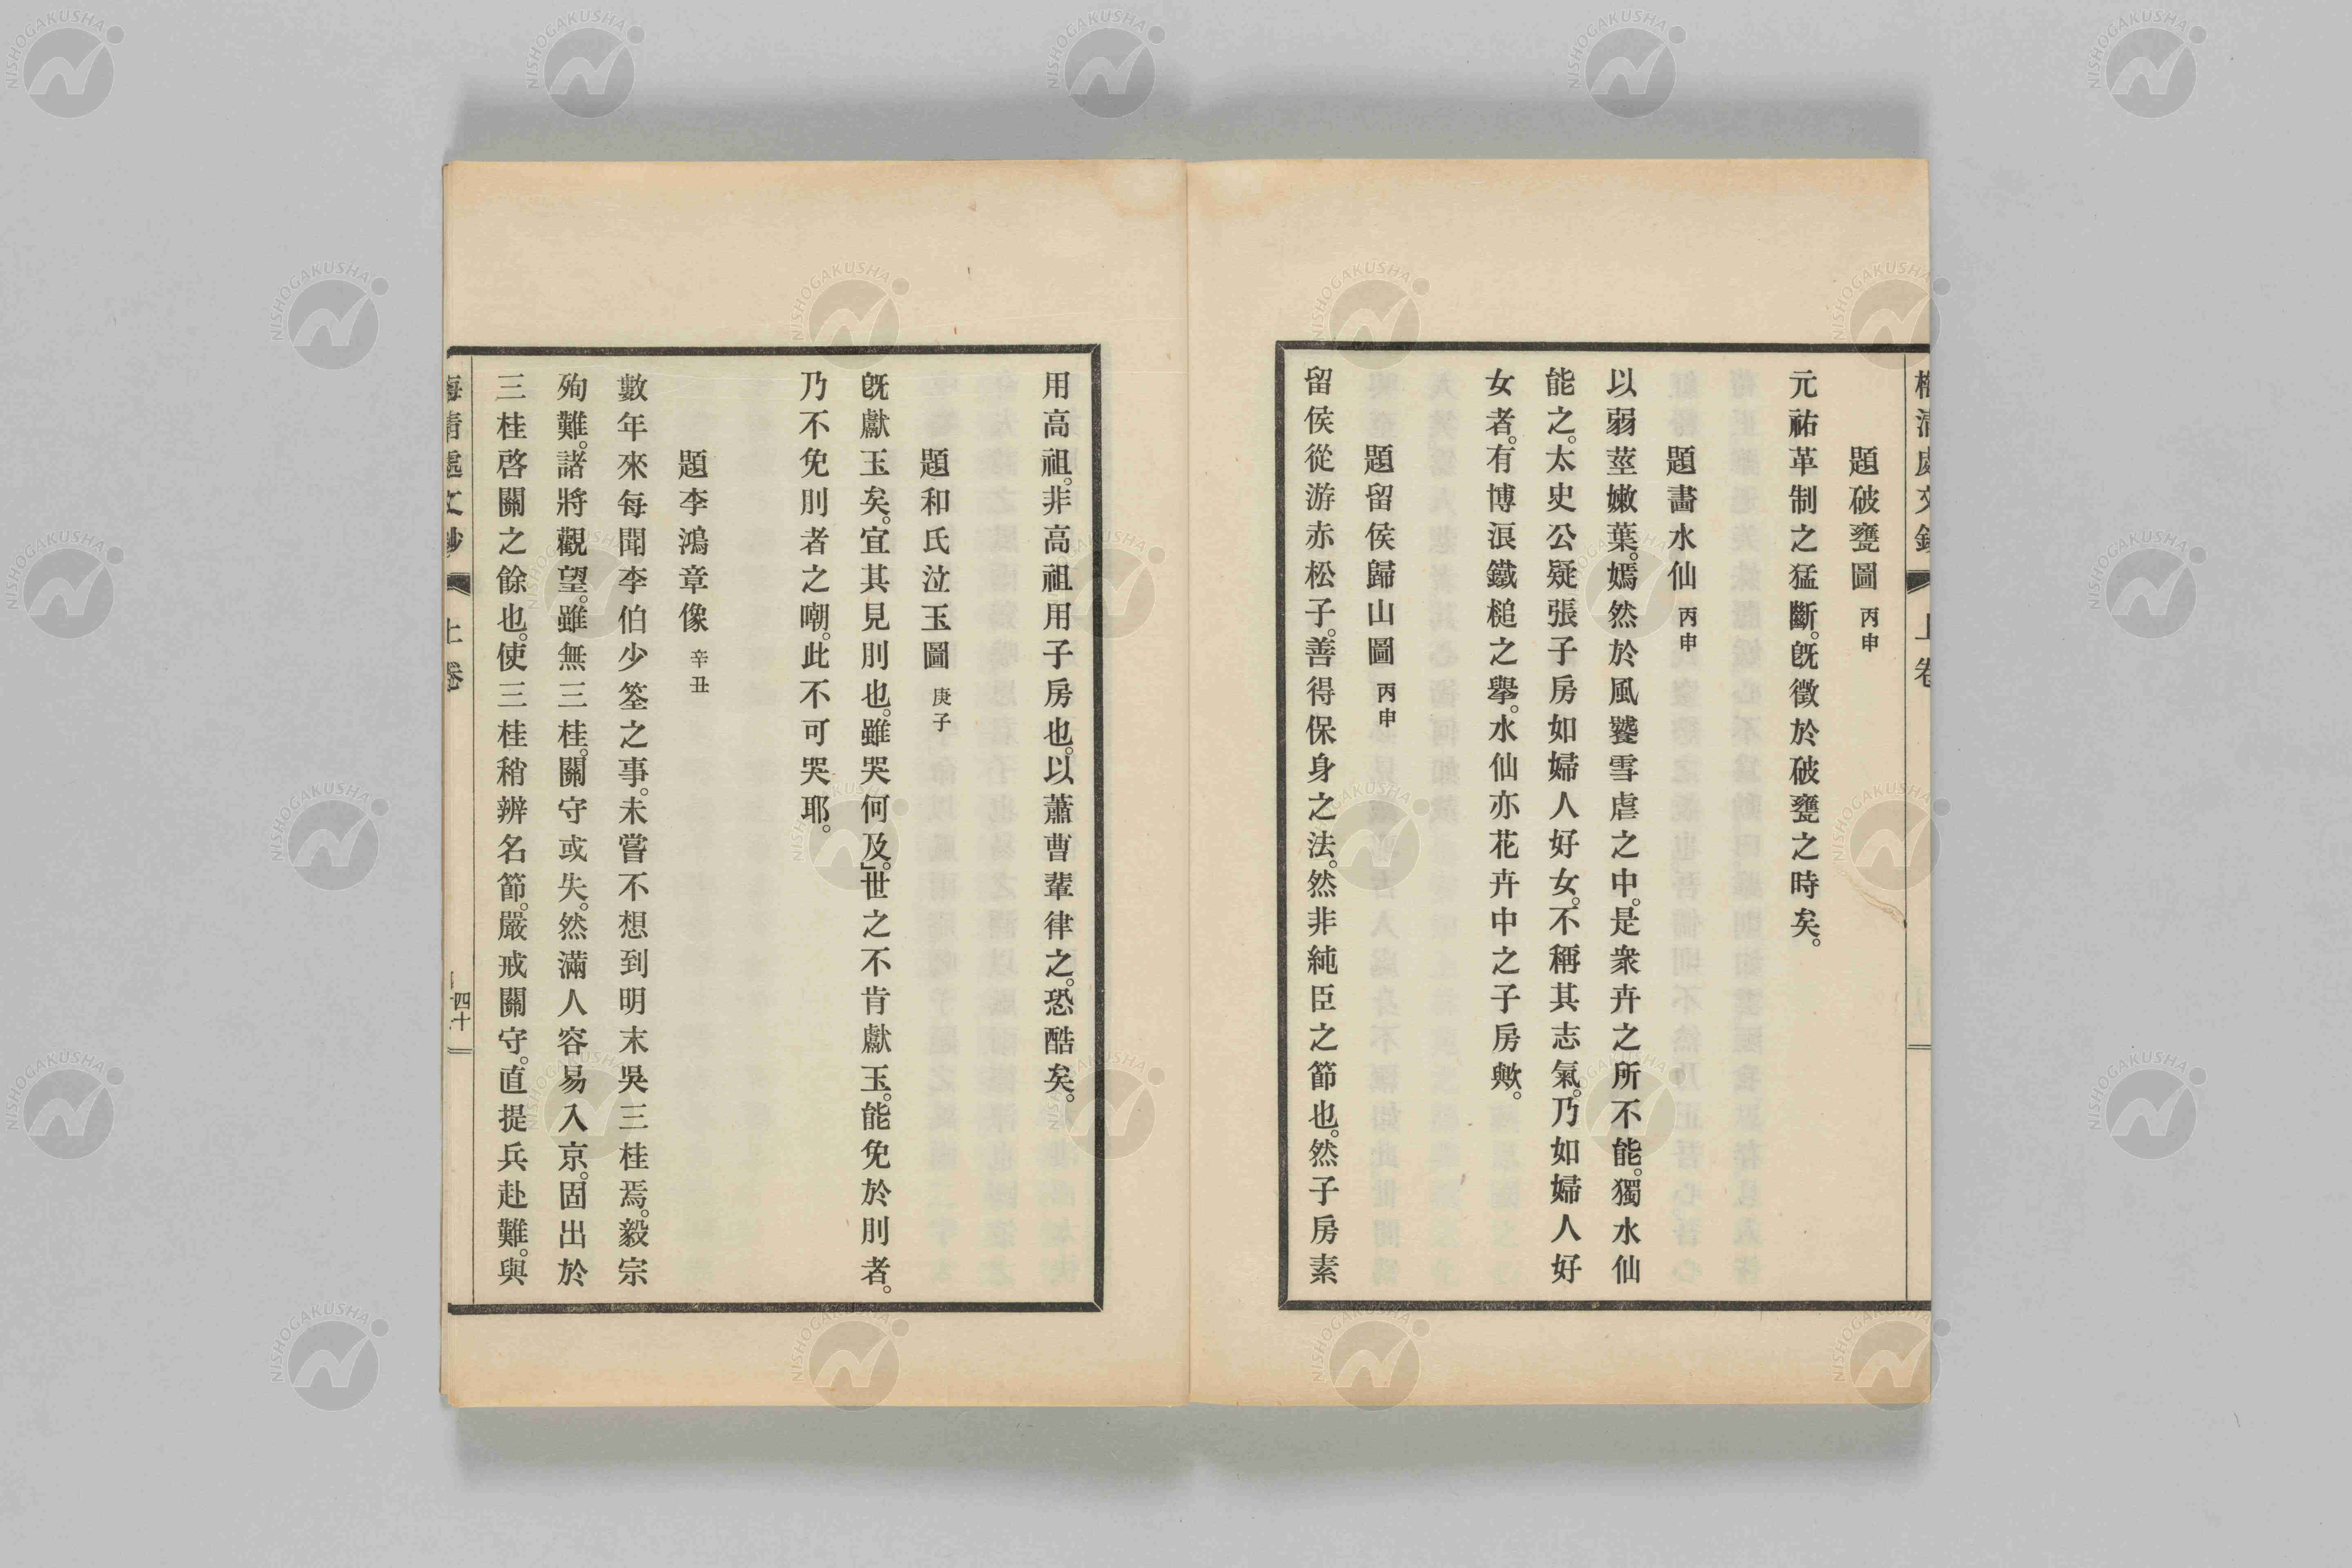 題破甕圖 丙申
元祐革制之猛斷。旣徵於破甕之時矣。
題畵水仙 丙申
以弱莖嫩葉。嫣然於風饕雪虐之中。是衆卉之所不能。獨水仙
能之。太史公疑張子房如婦人好女。不稱其志氣。乃如婦人好
女者。有博浪鐵槌之擧。水仙亦花卉中之子房歟。
題留侯歸山圖 丙申
留侯從游赤松子。善得保身之法。然非純臣之節也。然子房素
用高祖。非高祖用子房也。以蕭曹輩律之。恐酷矣。
題和氏泣玉圖 庚子
旣獻玉矣。宜其見刖也。雖哭何及。」世之不肯獻玉。能免於刖者。
乃不免刖者之嘲。此不可哭耶。
題李鴻章像 辛丑
數年來每聞李伯少筌之事。未嘗不想到明末吳三桂焉。毅宗
殉難。諸將觀望。雖無三桂。關守或失。然滿人容易入京。固出於
三桂啓關之餘也。使三桂稍辨名節。嚴戒關守。直提兵赴難。與
梅淸處文鈔 上卷
四十
NISHOGAKUSHA